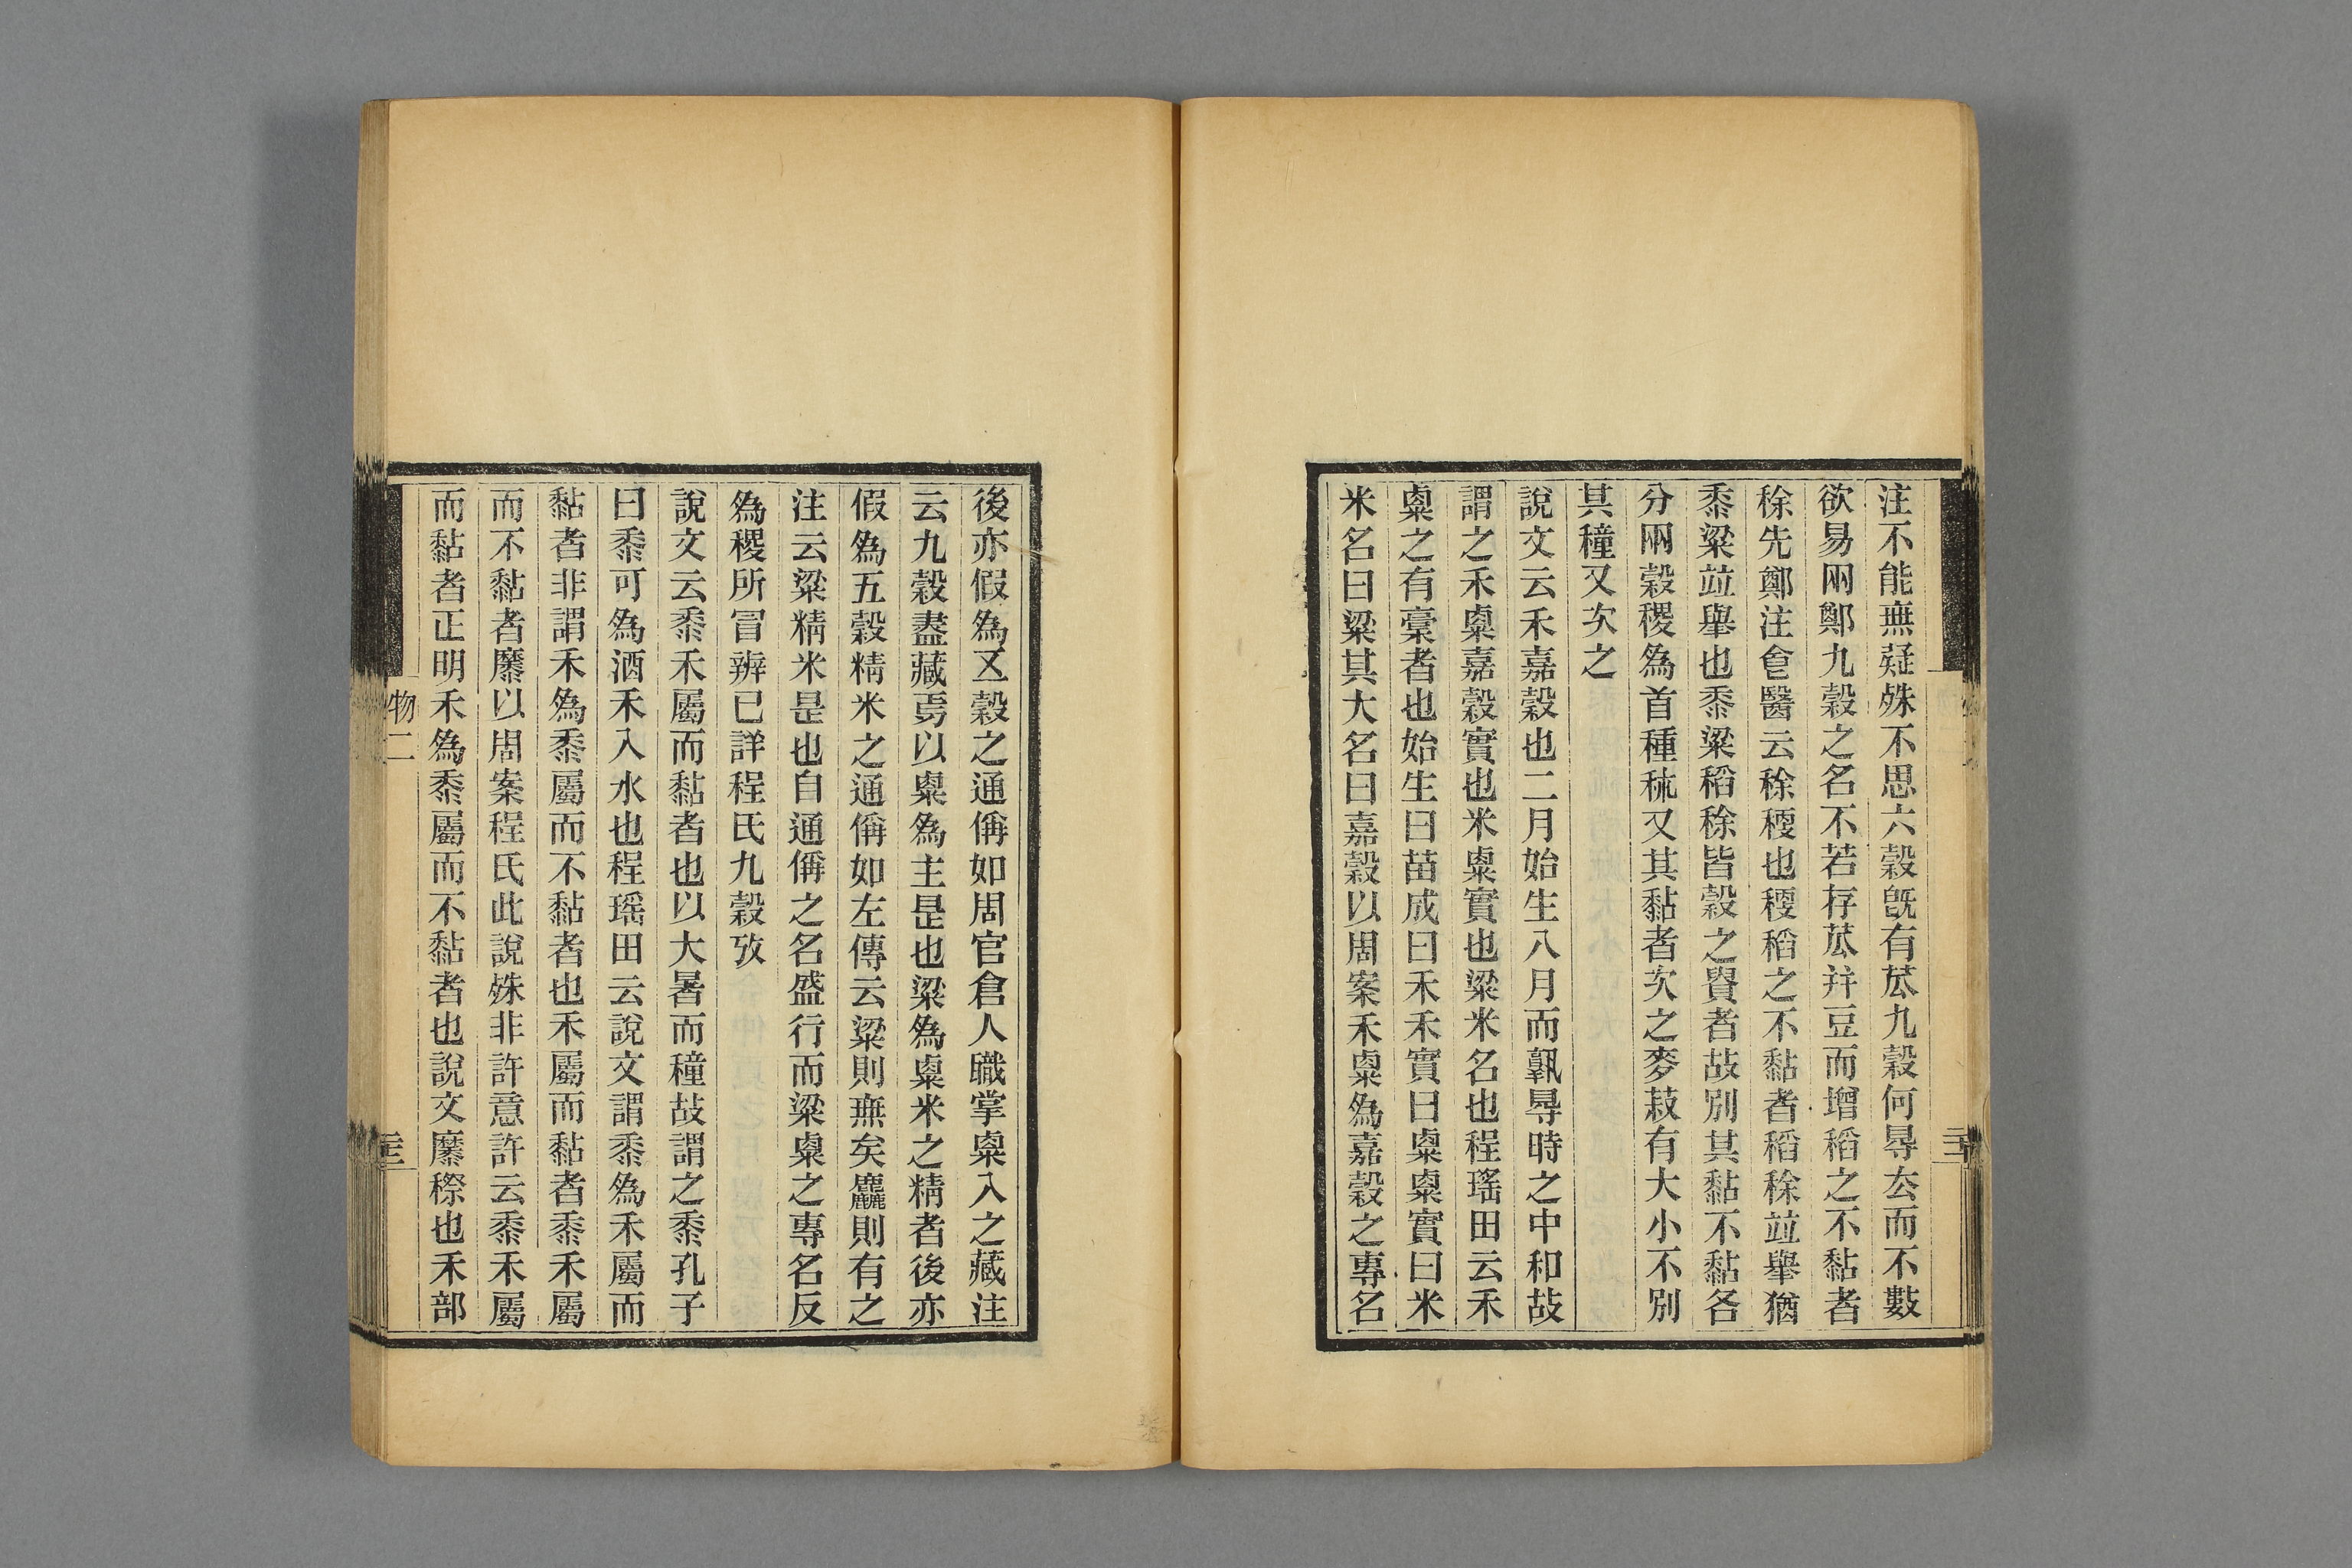 注不能無疑殊不思六穀旣有苽九穀何㝵厺而不數
欲易兩鄭九穀之名不若存苽幷豆而增稻之不黏者
稌先鄭注食醫云稌稉也稉稻之不黏者稻稌竝舉猶
黍粱竝舉也黍粱稻稌皆穀之貴者故別其黏不黏各
分兩穀稷為首種秫又其黏者次之麥菽有大小不別
其穜又次之
說文云禾嘉穀也二月始生八月而孰㝵時之中和故
謂之禾㮚嘉穀實也米㮚實也粱米名也程瑤田云禾
㮚之有稾者也始生曰苗成曰禾禾實曰㮚㮚實曰米
米名曰粱其大名曰嘉穀以周案禾㮚為嘉穀之專名
後亦假為五穀之通偁如周官倉人職掌㮚入之藏注
云九穀盡藏焉以㮚為主是也粱為㮚米之精者後亦
假為五穀精米之通偁如左傳云粱則無矣麤則有之
注云粱精米是也自通偁之名盛行而粱㮚之專名反
為稷所冒辨已詳程氏九穀攷
說文云黍禾屬而黏者也以大暑而穜故謂之黍孔子
曰黍可為酒禾入水也程瑤田云說文謂黍為禾屬而
黏者非謂禾為黍屬而不黏者也禾屬而黏者黍禾屬
而不黏者穈以周案程氏此說殊非許意許云黍禾屬
而黏者正明禾為黍屬而不黏者也說文穈穄也禾部
物二